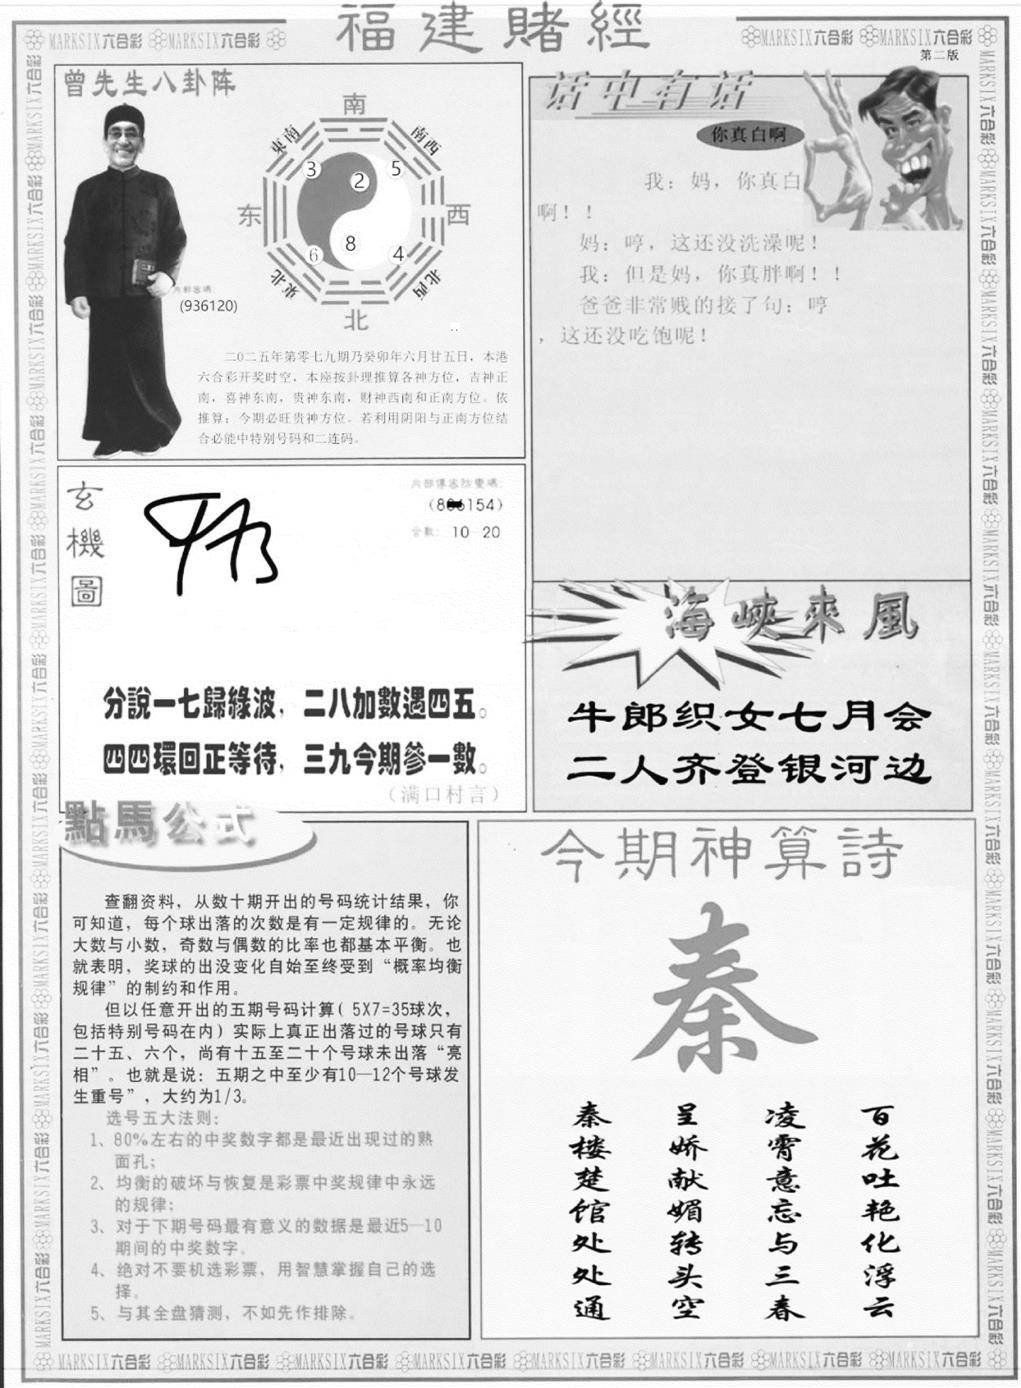 福建賭經
MARKSIX六合彩 MARKSIX六合彩
MARKSIX六合彩 MARKSIX六合彩
第二版
曾先生八卦阵
南
東南
南西
3
2
5
东
西
8
6
4
東北
北西
北
内部密碼:
(936120)
二〇二五年第零七九期乃癸卯年六月廿五日，本港
六合彩开奖时空，本座按卦理推算各神方位，吉神正
南，喜神东南，贵神东南，财神西南和正南方位。依
推算：今期必旺贵神方位。若利用阴阳与正南方位结
合必能中特别号码和二连码。
话中有话
你真白啊
我：妈，你真白
啊！！
妈：哼，这还没洗澡呢！
我：但是妈，你真胖啊！！
爸爸非常贱的接了句：哼
，这还没吃饱呢！
玄機圖
合數: 10-20
分說一七歸綠波，二八加數遇四五。
四四環回正等待，三九今期參一數。
（满口村言）
海峽來風
牛郎织女七月会
二人齐登银河边
點馬公式
查翻资料，从数十期开出的号码统计结果，你
可知道，每个球出落的次数是有一定规律的。无论
大数与小数，奇数与偶数的比率也都基本平衡。也
就表明，奖球的出没变化自始至终受到“概率均衡
规律”的制约和作用。
但以任意开出的五期号码计算( 5X7=35球次，
包括特别号码在内）实际上真正出落过的号球只有
二十五、六个，尚有十五至二十个号球未出落“亮
相”。也就是说：五期之中至少有10—12个号球发
生重号”，大约为1/3。
选号五大法则:
1、80%左右的中奖数字都是最近出现过的熟
面孔;
2、均衡的破坏与恢复是彩票中奖规律中永远
的规律;
3、对于下期号码最有意义的数据是最近5—10
期间的中奖数字。
4、绝对不要机选彩票，用智慧掌握自己的选
择。
5、与其全盘猜测，不如先作排除。
今期神算詩
秦
秦楼楚馆处处通
呈娇献媚转头空
凌霄意忘与三春
百花吐艳化浮云
MARKSIX六合彩 MARKSIX六合彩 MARKSIX六合彩 MARKSIX六合彩 MARKSIX六合彩 MARKSIX六合彩 MARKSIX六合彩 MARKSIX六合彩